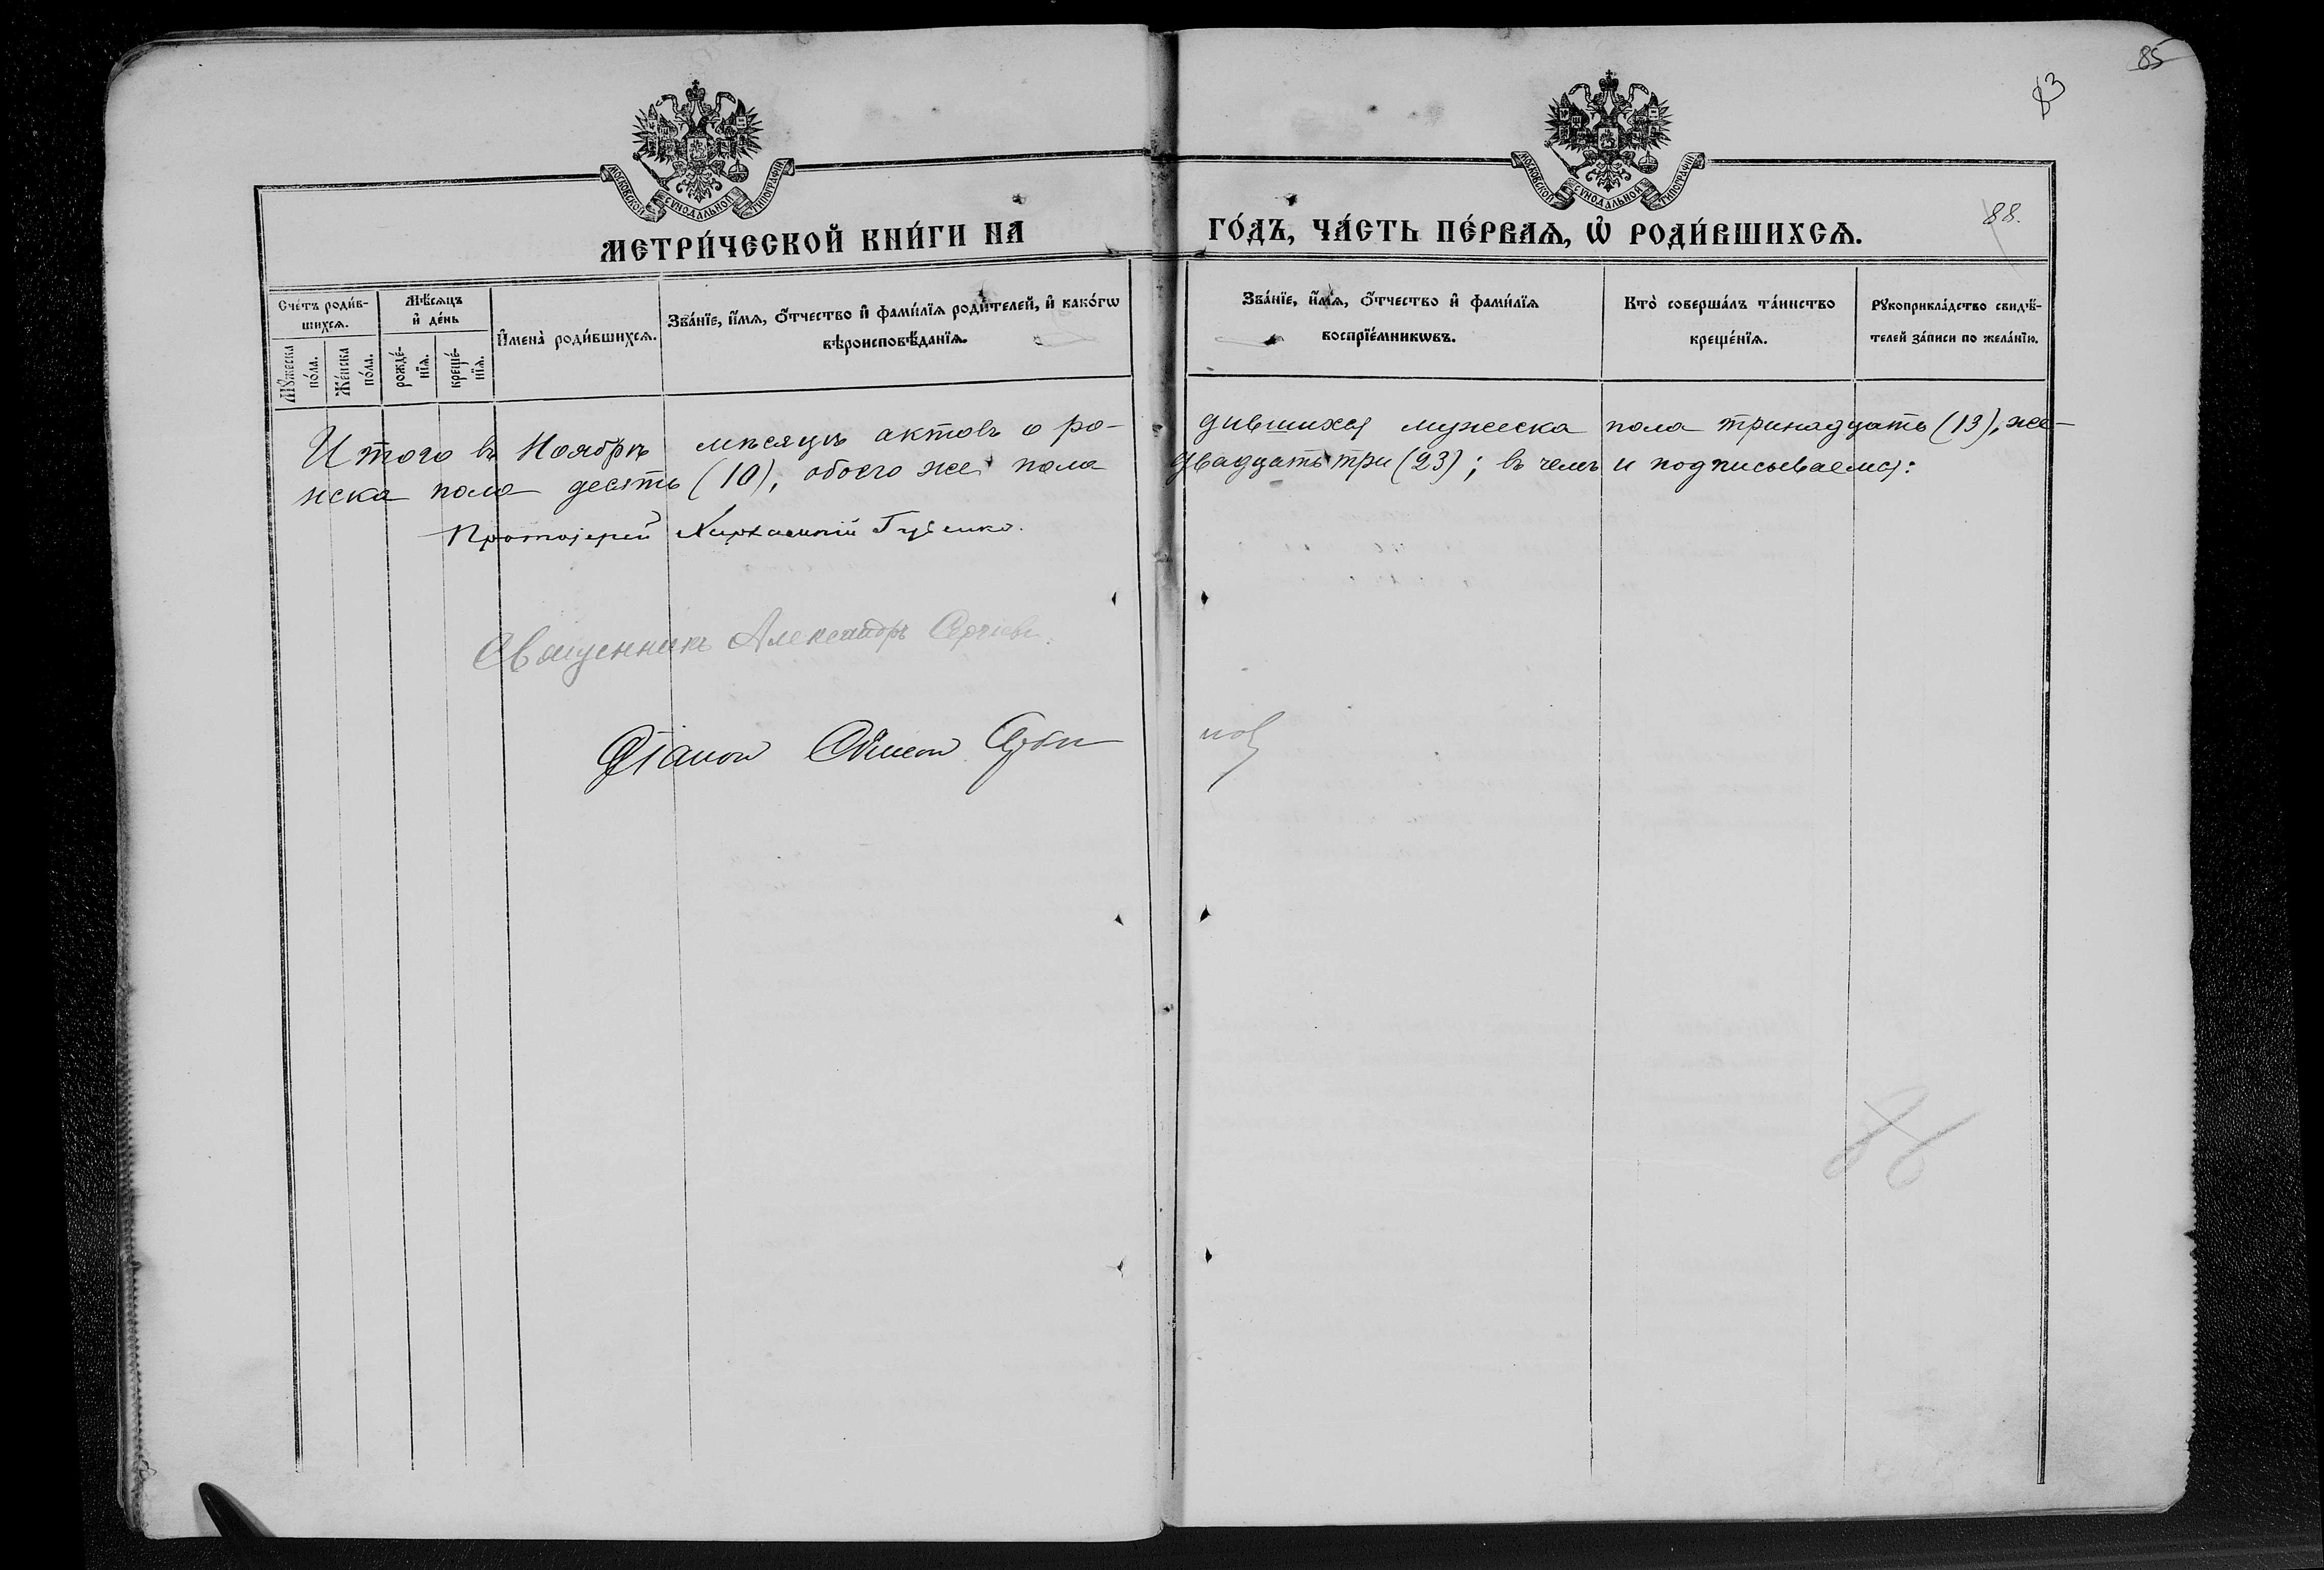 85
83
88.
МОСКОВСКОЙ СѴНОДАЛЬНОЙ ТИПОГРАФІИ
МОСКОВСКОЙ СѴНОДАЛЬНОЙ ТИПОГРАФІИ
МЕТРИ́ЧЕСКОЙ КНИ́ГИ НА ГО́ДЪ, ЧА́СТЬ ПЕ́РВАѦ, Ѡ҆ РОДИ́ВШИХСѦ.
Сче́тъ роди́в-
шихсѧ.
Мꙋ́жеска
по́ла.
Же́нска
по́ла.
Мѣ́сѧцъ
и҆ де́нь
рожде́-
нїѧ.
креще́-
нїѧ.
И҆мена̀ роди́вшихсѧ.
Зва́нїе, и҆́мѧ, ѻ҆́тчество и҆ фами́лїѧ роди́телей, и҆ како́гѡ
вѣроисповѣ́данїѧ.
Зва́нїе, и҆́мѧ, ѻ҆́тчество и҆ фами́лїѧ
воспрїе́мникѡвъ.
Кто̀ соверша́лъ та́инство
креще́нїѧ.
Рꙋкоприкла́дство свидѣ́-
телей за́писи по жела́нїю.
Итого въ Ноябрѣ мѣсяцѣ актовъ о ро-
дившихся мужеска пола тринадцать (13), же-
нска пола десять (10), обоего же пола
двадцать три (23); въ чемъ и подписываемся:
Протоіерей Губенко.
Священникъ Александръ Сергіевъ.
Діакон Симеон
88